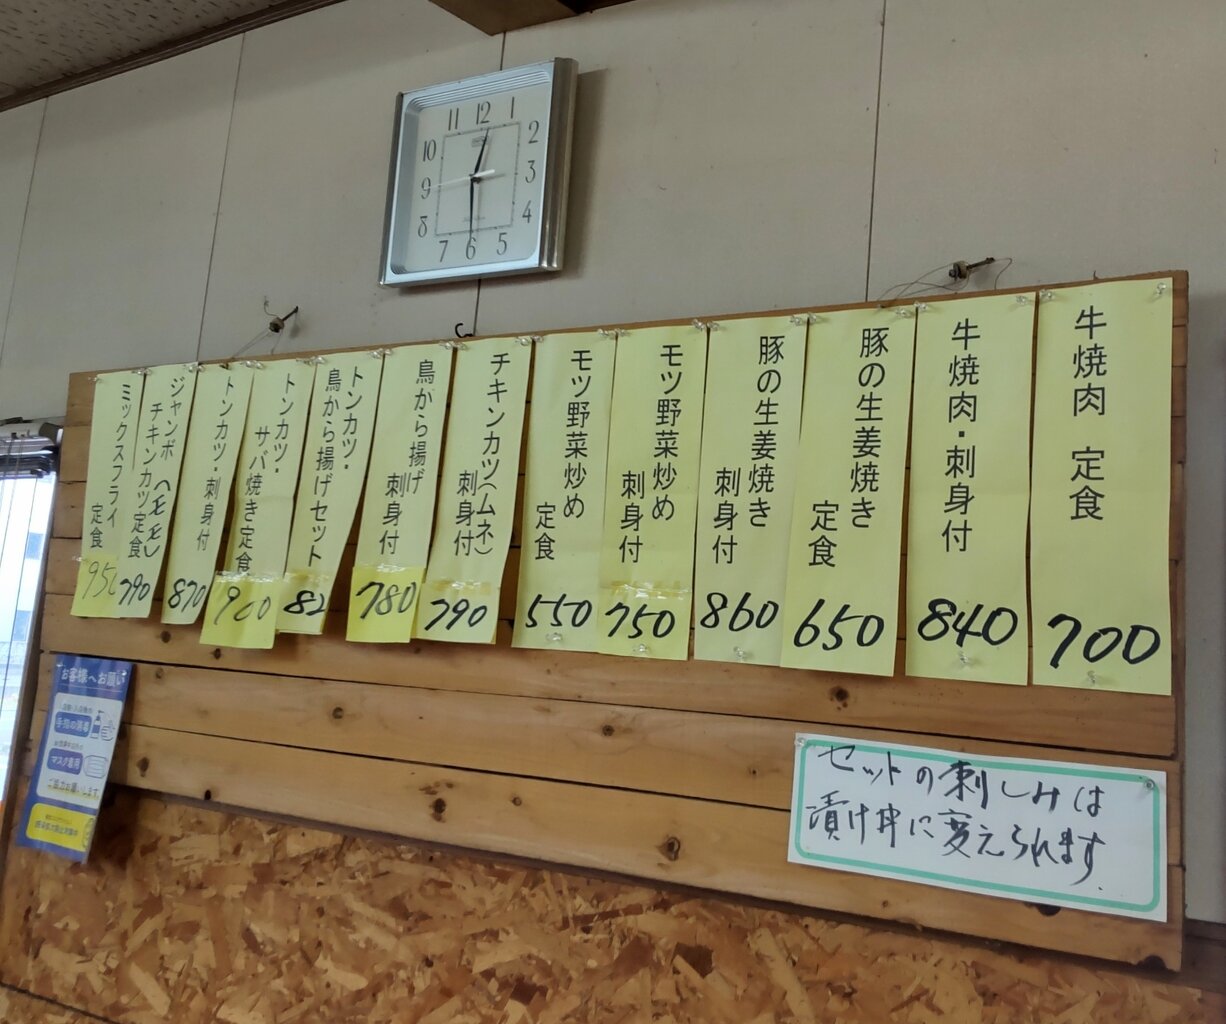 11 12 1
10 2
9 3
8 4
7 6 5
牛焼肉 定食
700
牛焼肉・刺身付
840
豚の生姜焼き
定食
650
豚の生姜焼き
刺身付
860
モツ野菜炒め
刺身付
750
モツ野菜炒め
定食
550
チキンカツ(ムネ)
刺身付
790
鳥から揚げ
刺身付
780
トンカツ・
鳥から揚げセット
82
トンカツ・
サバ焼き定食
900
トンカツ・刺身付
870
ジャンボ(モモ)
チキンカツ定食
790
ミックスフライ
定食
95
セットの刺しみは
漬け丼に変えられます.
お客様へお願い
手指の消毒
マスク着用
ご協力お願いします